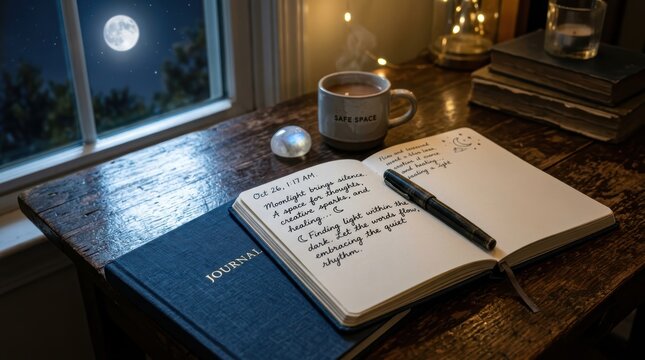 SAFE SPACE
Oct 26, 1:17 AM.
Moonlight brings silence.
A space for thoughts,
creative sparks, and
healing...
Finding light within the
dark. Let the words flow,
embracing the quiet
rhythm.
and healing...
JOURNAL